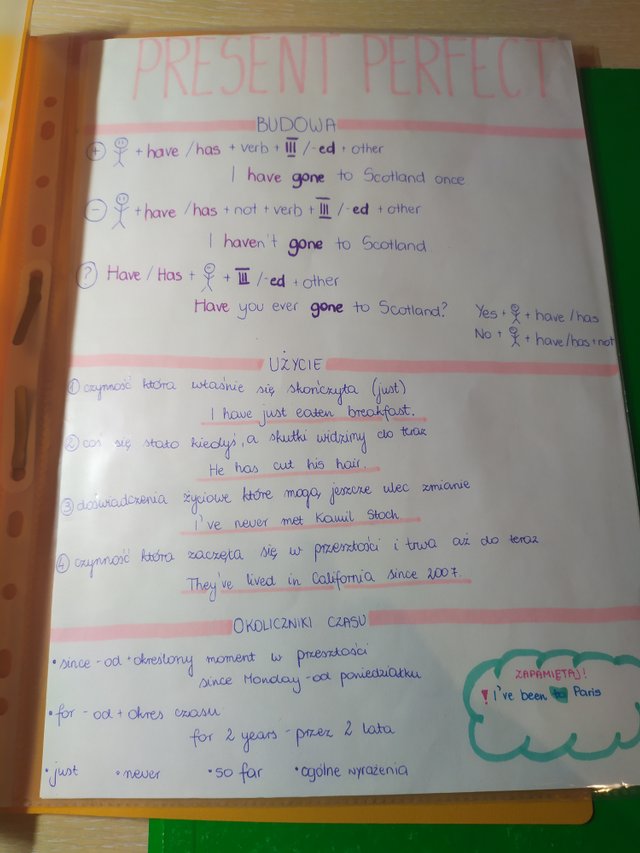 PRESENT PERFECT
BUDOWA
+ + have / has + verb + III / -ed + other
I have gone to Scotland once
- + have / has + not + verb + III / -ed + other
I haven't gone to Scotland
? Have / Has + + III / -ed + other
Have you ever gone to Scotland?
Yes + + have / has
No + + have/has+not
UŻYCIE
① czynność która właśnie się skończyła (just)
I have just eaten breakfast.
② coś się stało kiedyś, a skutki widzimy do teraz
He has cut his hair.
③ doświadczenia życiowe które mogą jeszcze ulec zmianie
I've never met Kamil Stoch
④ czynność która zaczęła się w przeszłości i trwa aż do teraz
They've lived in California since 2007.
OKOLICZNIKI CZASU
• since - od + określony moment w przeszłości
since Monday - od poniedziałku
• for - od + okres czasu
for 2 years - przez 2 lata
• just • never • so far • ogólne wyrażenia
ZAPAMIĘTAJ!
! I've been to Paris